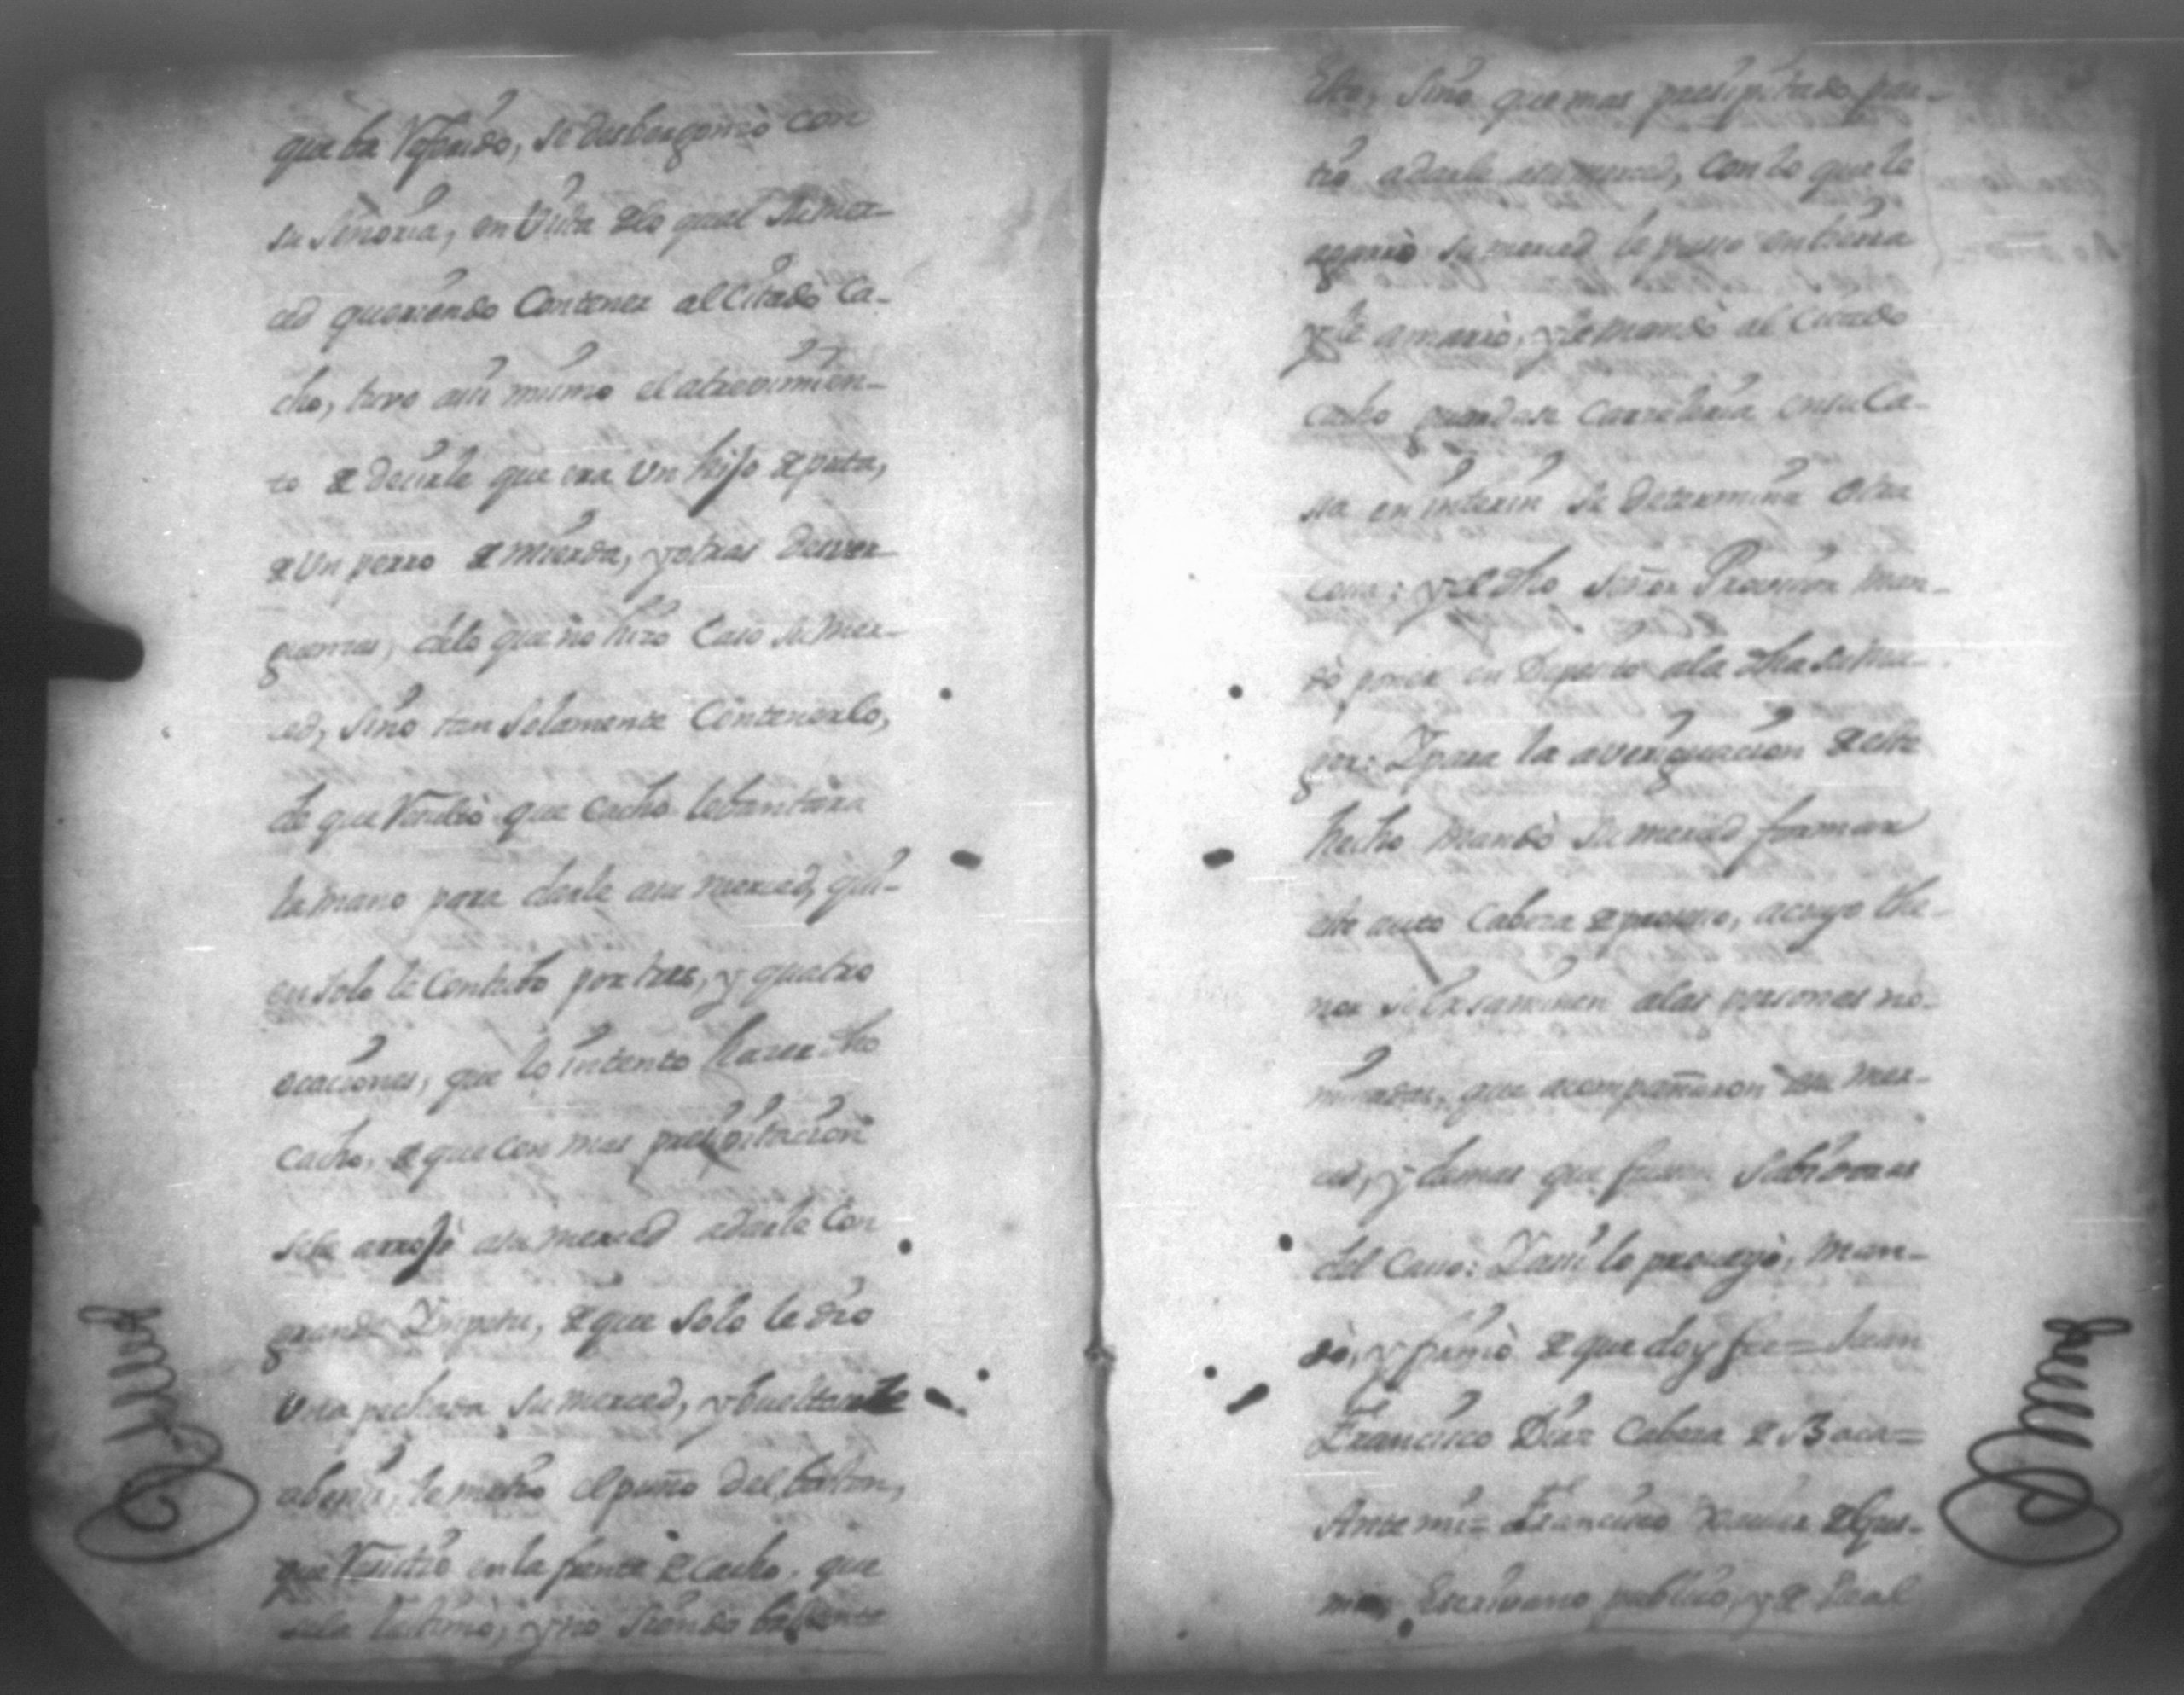 que ba Vaſeado, se desbergonzò con
su Señoria, en Vista de lo qual su mer-
ced queriendo Contener al Citado Ca-
cho, tuvo asi mismo el atrevimien-
to de decirle que era Un hijo de puta,
de Un perro de mierda, y otras desver-
guenzas, de lo que no hizo Caso su mer-
ced, sino tan solamente Contenerlo,
de que Vesultò que Cacho lebantara
la mano para darle a su merced, qui-
en solo le Contubo por tres, y quatro
ocaciones, que lo intento hazer dho
Cacho, de que con mas presipitacion
se le arrojò a su merced a darle Con
grande Impetu, de que solo le dio
Una pechada su merced, y bueltan le
abenir, le metio el puño del baston,
que Vesivio en la frente de Cacho, que
se la lastimò, y no siendo bastante
Esto, sino que mas presipitado par-
tio a darle a su merced, Con lo que le
agarrò su merced le puso en tierra
y le amarrò, y le mandò al Citado
Cacho guardase Carceleria en su Ca-
sa en interin se determina Otra
Cosa: y el dho Señor Provisor man-
dò poner en Deposito a la dha su mu-
ger: Y para la averiguacion de este
hecho mandò su merced formar
este auto Cabeza de proceso, a cuyo the-
nor se Exsaminen a las personas no-
minadas, que acompañaron a su mer-
ced, y demas que fuesen Sabidoras
del Caso: Y asi lo proveyò, man-
dò, y firmò de que doy fee = Juan
Francisco Diaz Cabeza de Baca =
Ante mi = Francisco Xavier de Gus-
man, Escrivano publico, y de Real